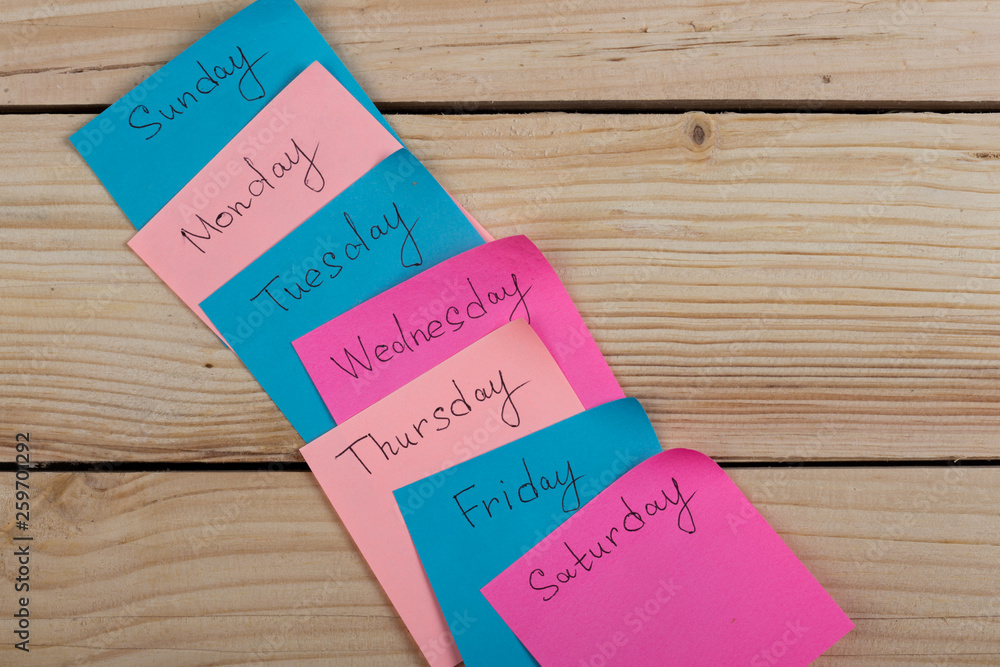 Sunday
Monday
Tuesday
Wednesday
Thursday
Friday
Saturday
Adobe Stock | #259701292